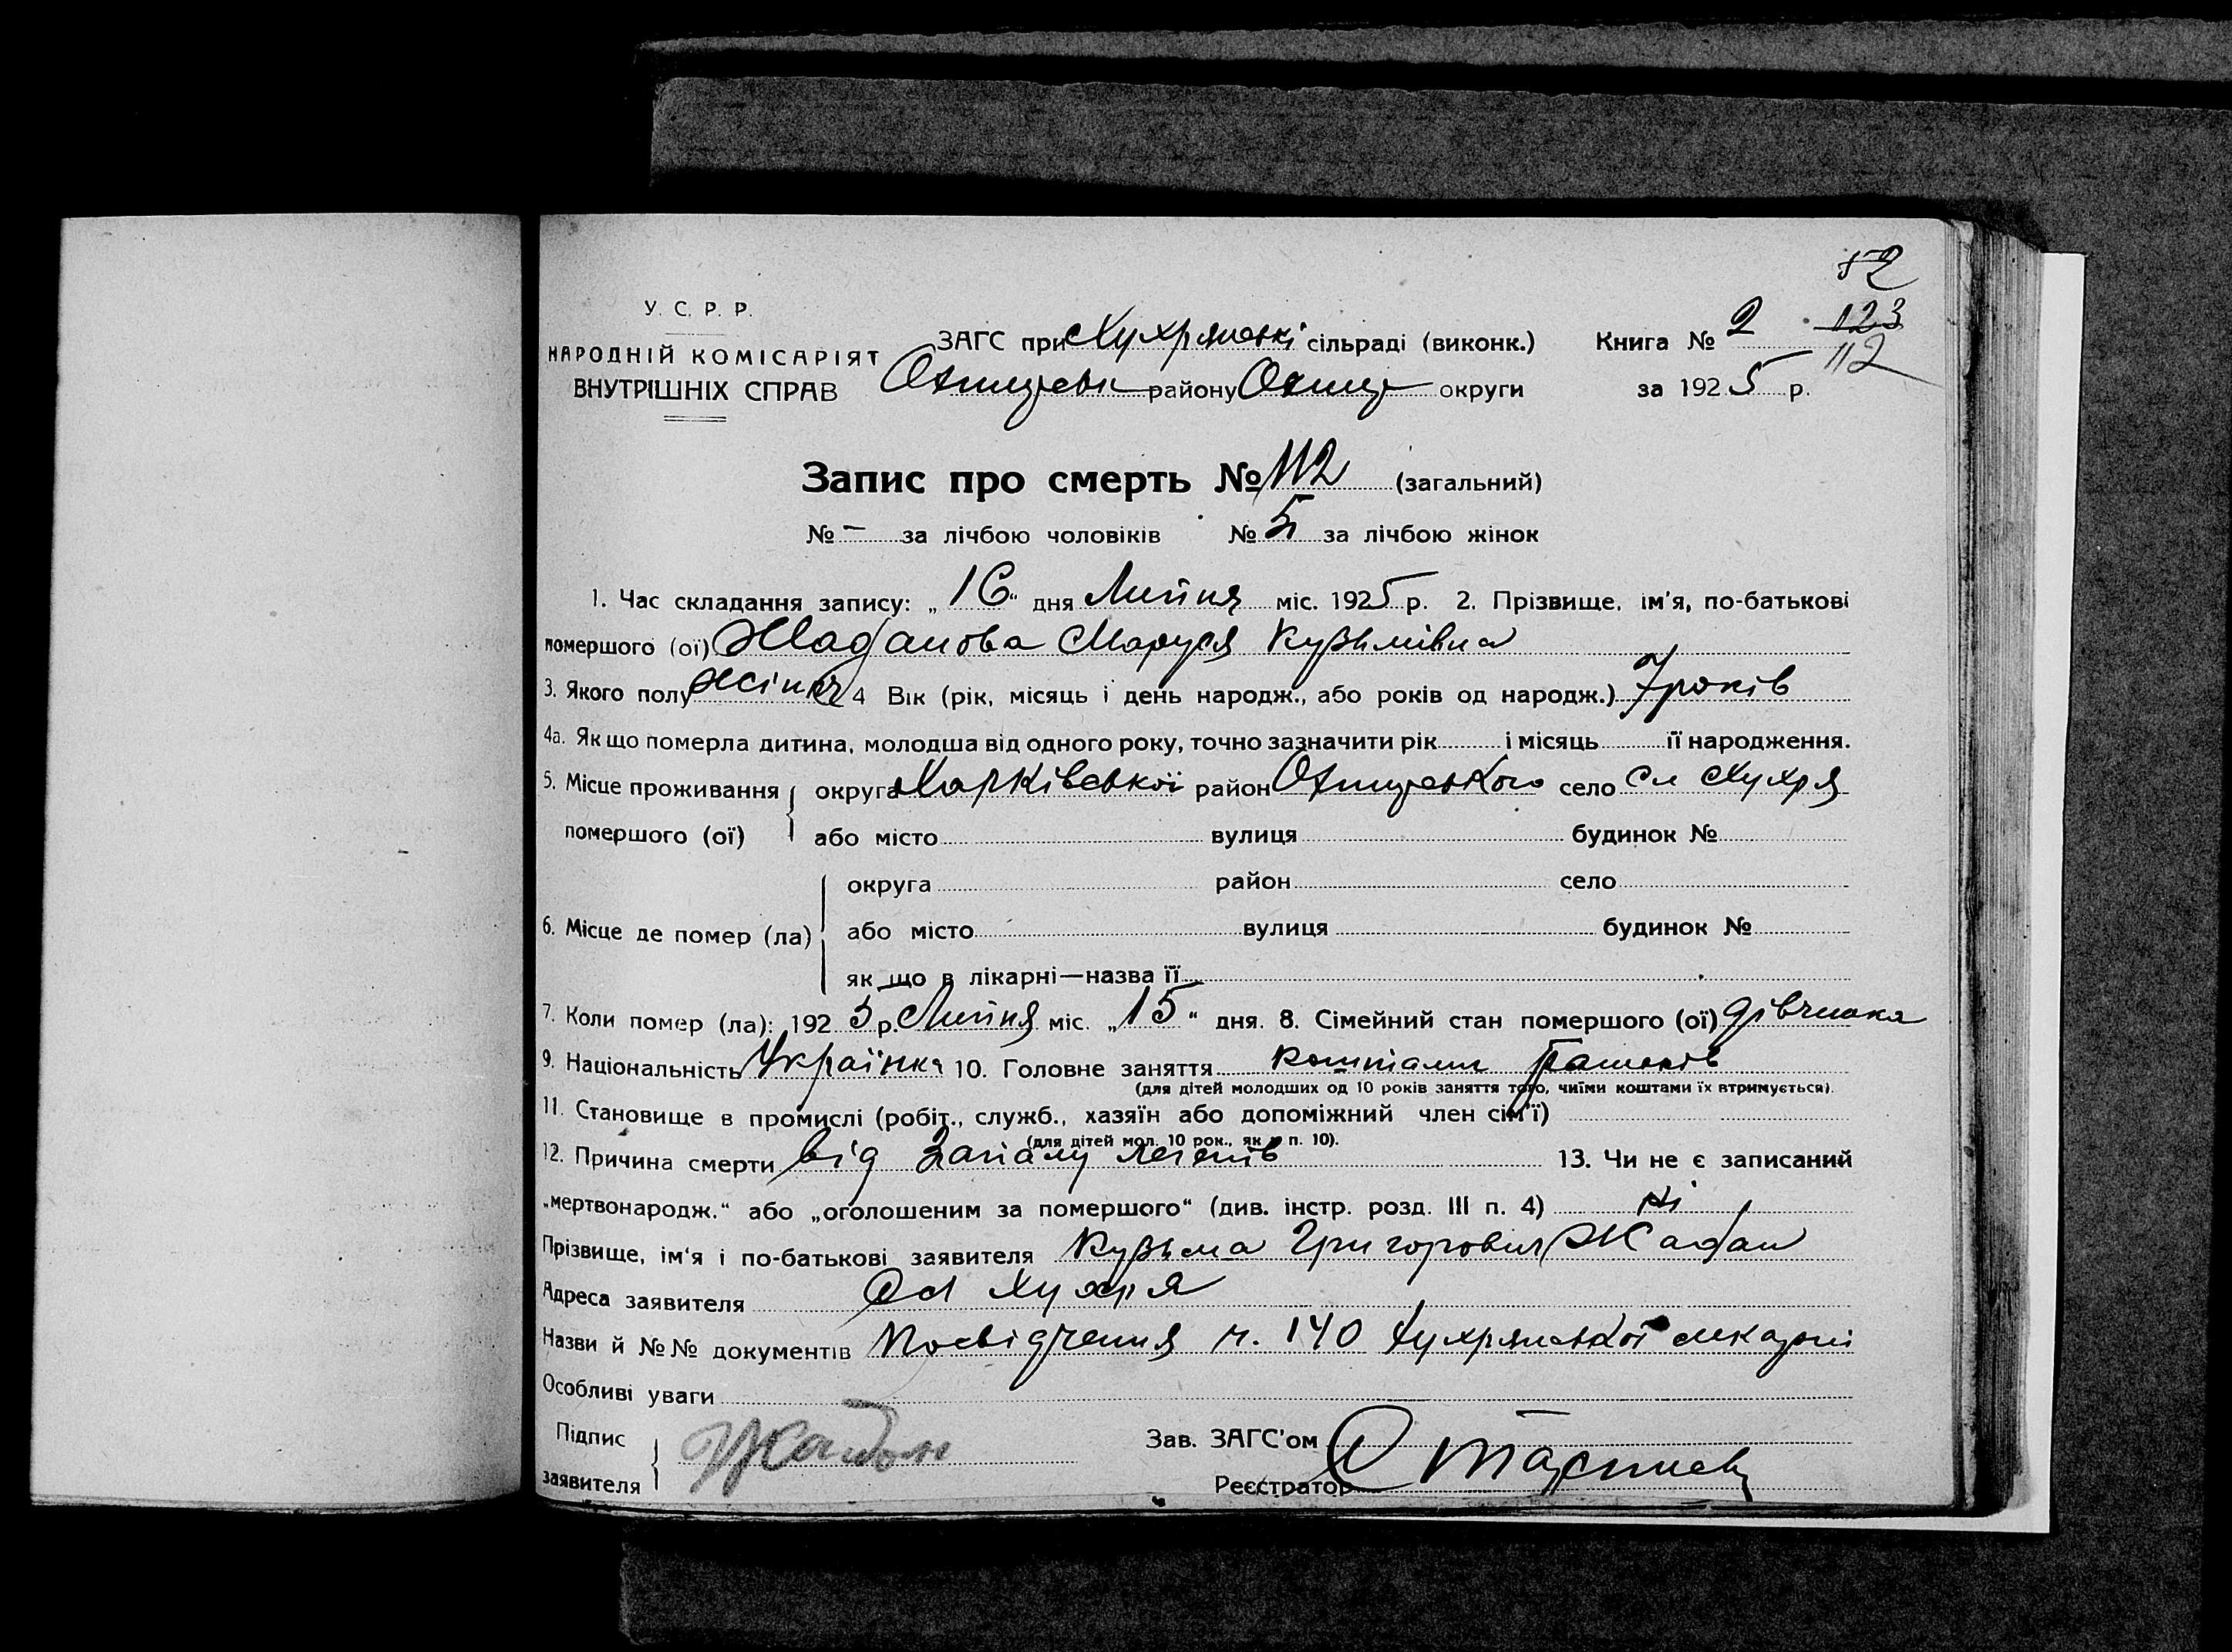 52
У. С. Р. Р.
НАРОДНІЙ КОМІСАРІЯТ
ВНУТРІШНІХ СПРАВ
ЗАГС при Хухрянскі сільраді (виконк.)
Книга № 2 123
112
Охтирськ району Охтир округи
за 1925 р.
Запис про смерть № 112 (загальний)
№ – за лічбою чоловіків № 5 за лічбою жінок
1. Час складання запису: „16“ дня Липня міс. 1925 р. 2. Прізвище, ім'я, по-батькові
помершого (ої) Жаданова Маруся Кузьмівна
3. Якого полу жіноч 4 Вік (рік, місяць і день народж., або років од народж.) 7 років
4а. Як що померла дитина, молодша від одного року, точно зазначити рік і місяць її народження.
5. Місце проживання округа Харківської район Охтирського село Сл Хухря
помершого (ої) або місто вулиця будинок №
округа район село
6. Місце де помер (ла) або місто вулиця будинок №
як що в лікарні—назва її
7. Коли помер (ла): 1925 р. Липня міс. „15“ дня. 8. Сімейний стан помершого (ої) дівчинка
9. Національність Українка 10. Головне заняття коштами батьків
(для дітей молодших од 10 років заняття того, чиїми коштами їх втримується).
11. Становище в промислі (робіт., служб., хазяїн або допоміжний член сім'ї)
(для дітей мол. 10 рок., як в п. 10).
12. Причина смерти від Запалу легенів 13. Чи не є записаний
„мертвонародж.“ або „оголошеним за помершого“ (див. інстр. розд. III п. 4) ні
Прізвище, ім'я і по-батькові заявителя Кузьма Григорович Жадан
Адреса заявителя Хухря
Назви й №№ документів Посвідчення ч. 140 Хухрянської лікарні
Особливі уваги
Підпис
заявителя Жадан
Зав. ЗАГС'ом
Реєстратор